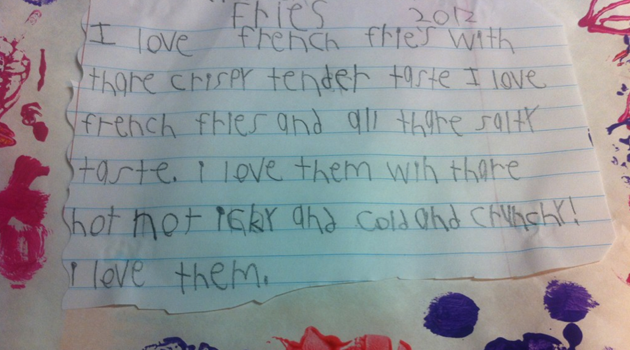 Fries 2012
I love french fries with
thare crispy tender taste I love
french fries and all thare salty
taste. i love them wih thare
hot not icky and cold and crunchy!
i love them.